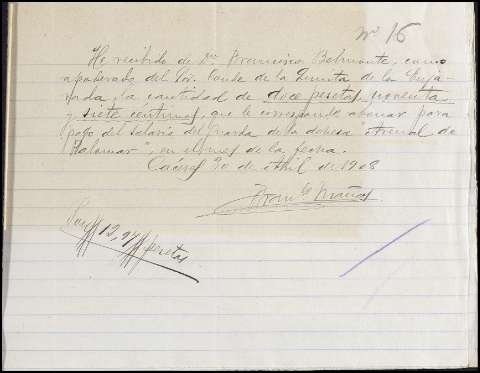 nº 16
He recibido de Dn. Francisco Belmonte, como
apoderado del Sr. Conde de la Quinta de la Enja-
rada, la cantidad de doce pesetas noventa
y siete céntimos, que le corresponde abonar para
pago del salario del Guarda de la dehesa "Arenal de
Palomar", en el mes de la fecha.
Cáceres 30 de Abril de 1908
Son # 12,97 # pesetas